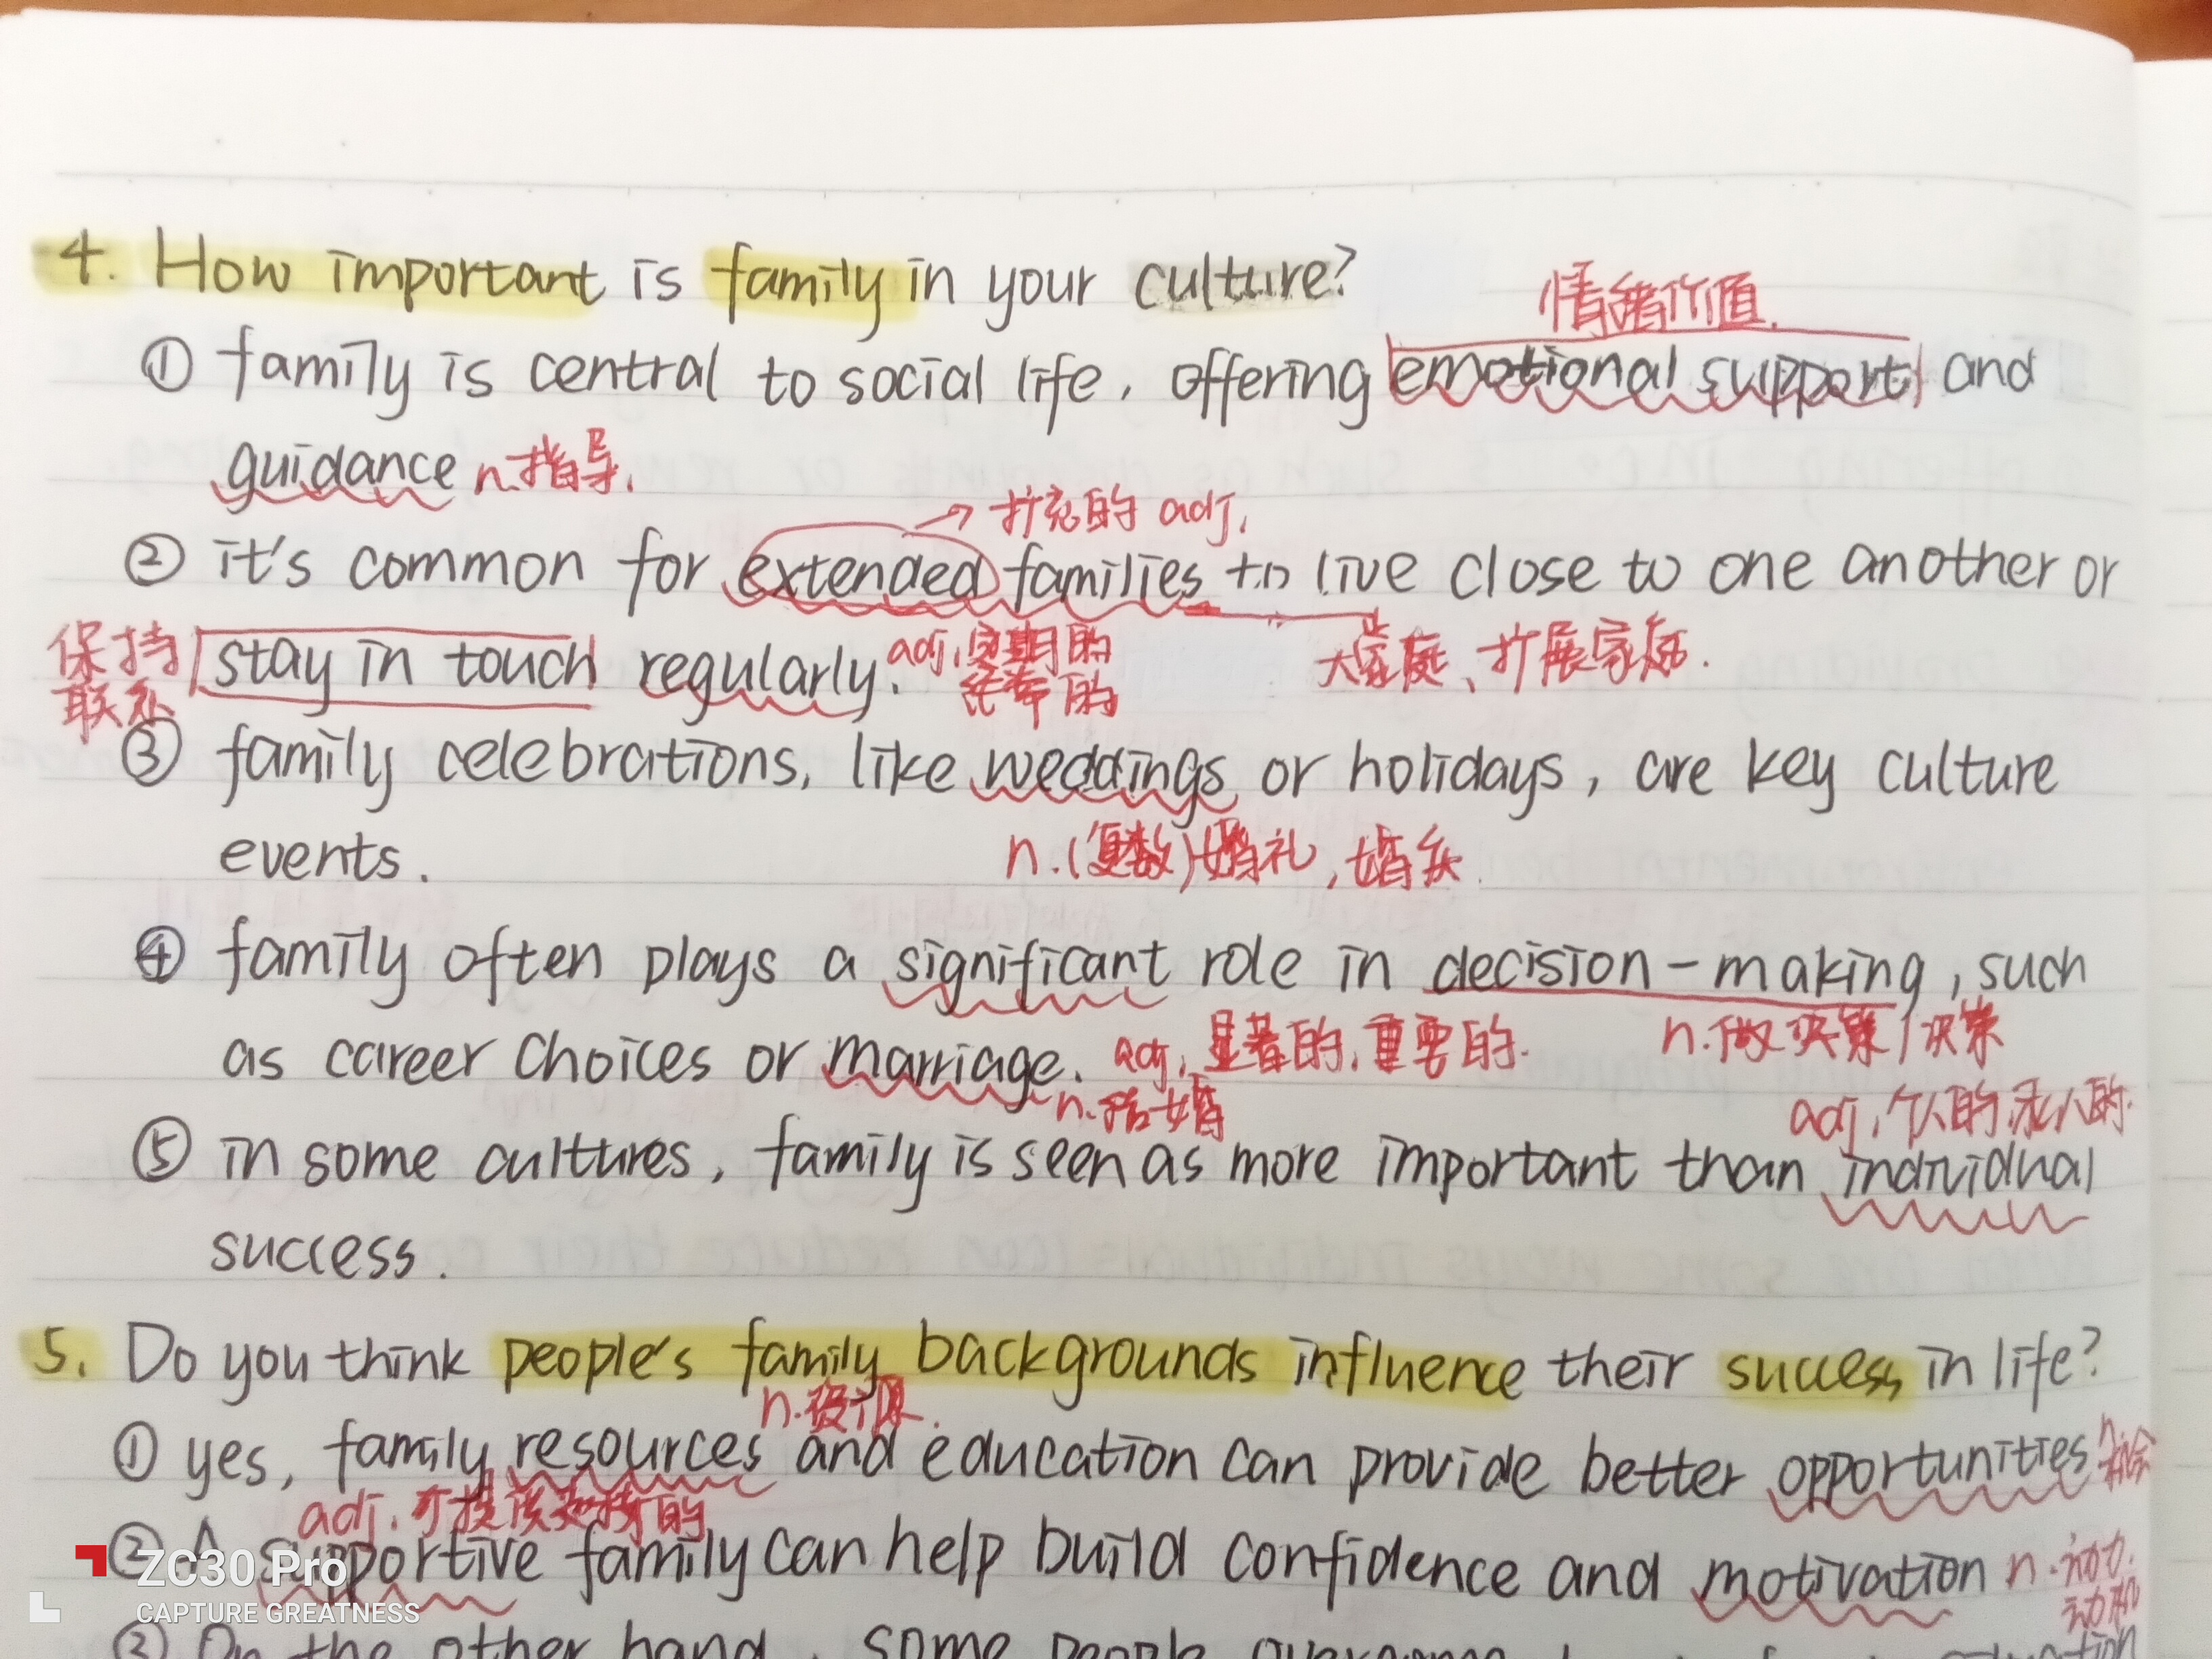 4. How important is family in your culture?
情绪价值.
① family is central to social life, offering emotional support and
guidance n.指导.
→ 扩充的 adj.
② it's common for extended families to live close to one another or
保持联系
stay in touch regularly. adj.定期的
经常的
大家庭、扩展家庭.
③ family celebrations, like weddings or holidays, are key culture
events. n.(复数)婚礼,婚
④ family often plays a significant role in decision-making, such
as career choices or marriage. adj.显著的,重要的. n.做决策/决策
n.结婚
adj.个人的,私人的.
⑤ in some cultures, family is seen as more important than individual
success.
5. Do you think people's family backgrounds influence their success in life?
n.资源.
① yes, family resources and education can provide better opportunities n.机会
adj.可提供支持的
② A supportive family can help build confidence and motivation n.动力.
动机
③ On the other hand, some people
ZC30 Pro
CAPTURE GREATNESS